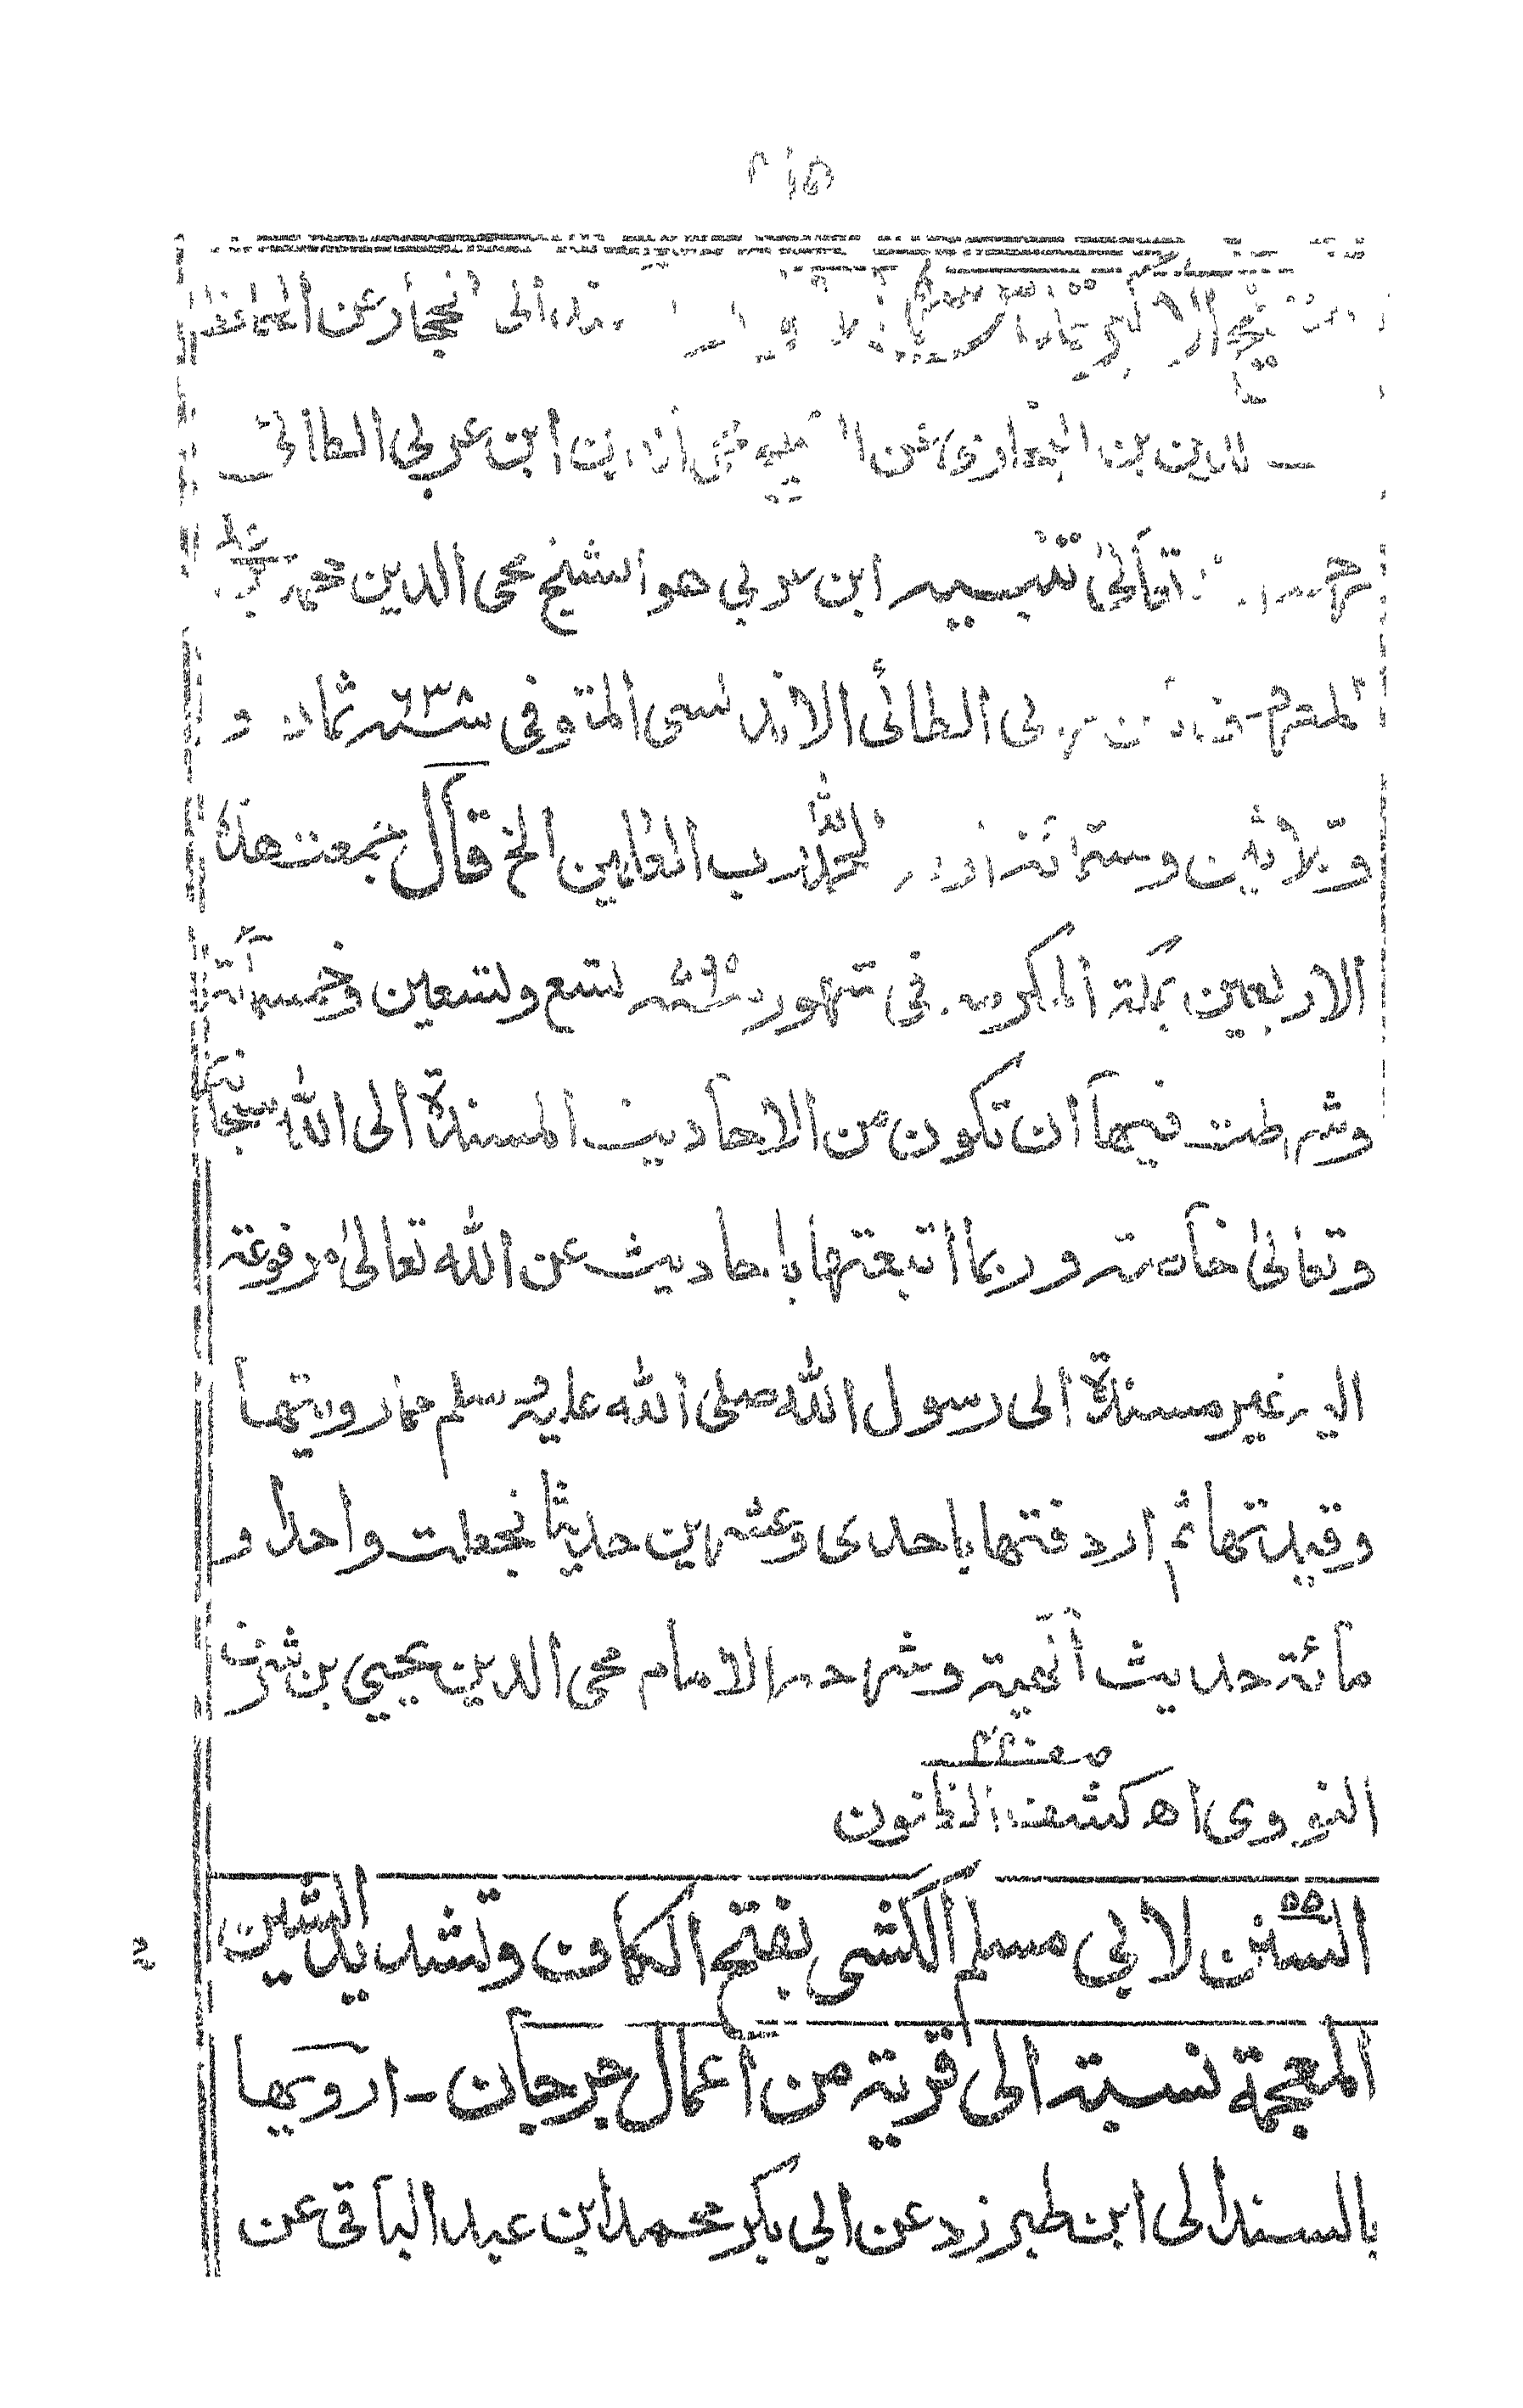 الى الحجار عن الحافظ
الدين بن البخارى عن محى الدين ابن عربى الطائى
تعالى تفسير ابن عربى هو الشيخ محى الدين محمد
الطائى الاندلسى المتوفى سنة ٦٣٨ ثمان و
وثلاثين وستمائة اوله الحمد لله رب العلمين الخ قال جمعت هذه
الاربعين بمكة المكرمه فى شهور سنة ٥٩٩ تسع وتسعين وخمسمائة
وشرطت فيها ان تكون من الاحاديث المسندة الى الله سبحانه
وتعالى خاصة وربما اتبعتها باحاديث عن الله تعالى مرفوعة
اليه غير مسندة الى رسول الله صلى الله عليه وسلم مما رويتها
وقيدتها ثم اردفتها باحدى وعشرين حديثا فجعلت واحدا و
مائة حديث الٰهية وشرحه الامام محى الدين يحيى بن شرف
النووى اھ كشف الظنون
السنن لابي مسلم الكشى بفتح الكاف وتشديد الشين
المعجمة نسبة الى قرية من اعمال جرجان - ارويها
بالسند الى ابن طبرزد عن ابى بكر محمد ابن عبد الباقى عن